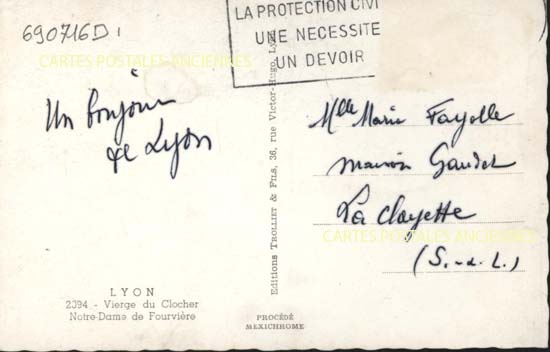 690716D1
LA PROTECTION CIVI
UNE NECESSITE
UN DEVOIR
CARTES POSTALES ANCIENNES
Un bonjour
de Lyon
Editions TROLLIET & FILS, 36, rue Victor-Hugo, Ly
Mlle Marie Fayolle
maison Gaudet
La Clayette
CARTES POSTALES ANCIENNES
(S.-à.-L.)
LYON
2394 - Vierge du Clocher
Notre-Dame de Fourvière
PROCÉDÉ
MEXICHROME